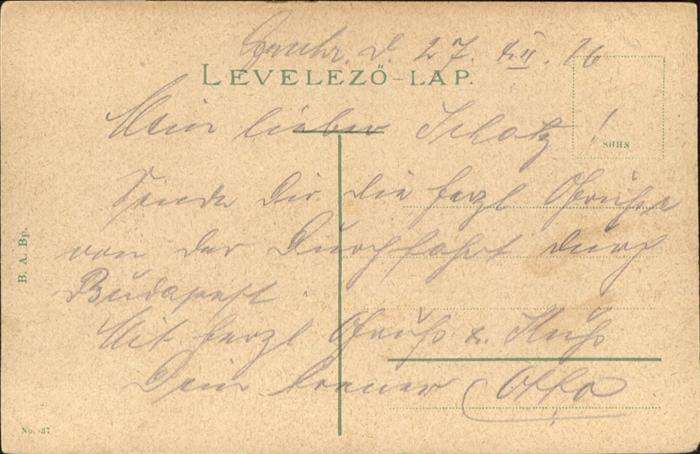 d. 27. XII. 16
LEVELEZŐ-LAP.
Mein lieber Schatz!
Sende Dir die herzl Grüße
von der Durchfahrt durch
Budapest.
Mit herzl Gruß u. Kuß
Dein treuer Otto
B. A. Bp.
No. 37